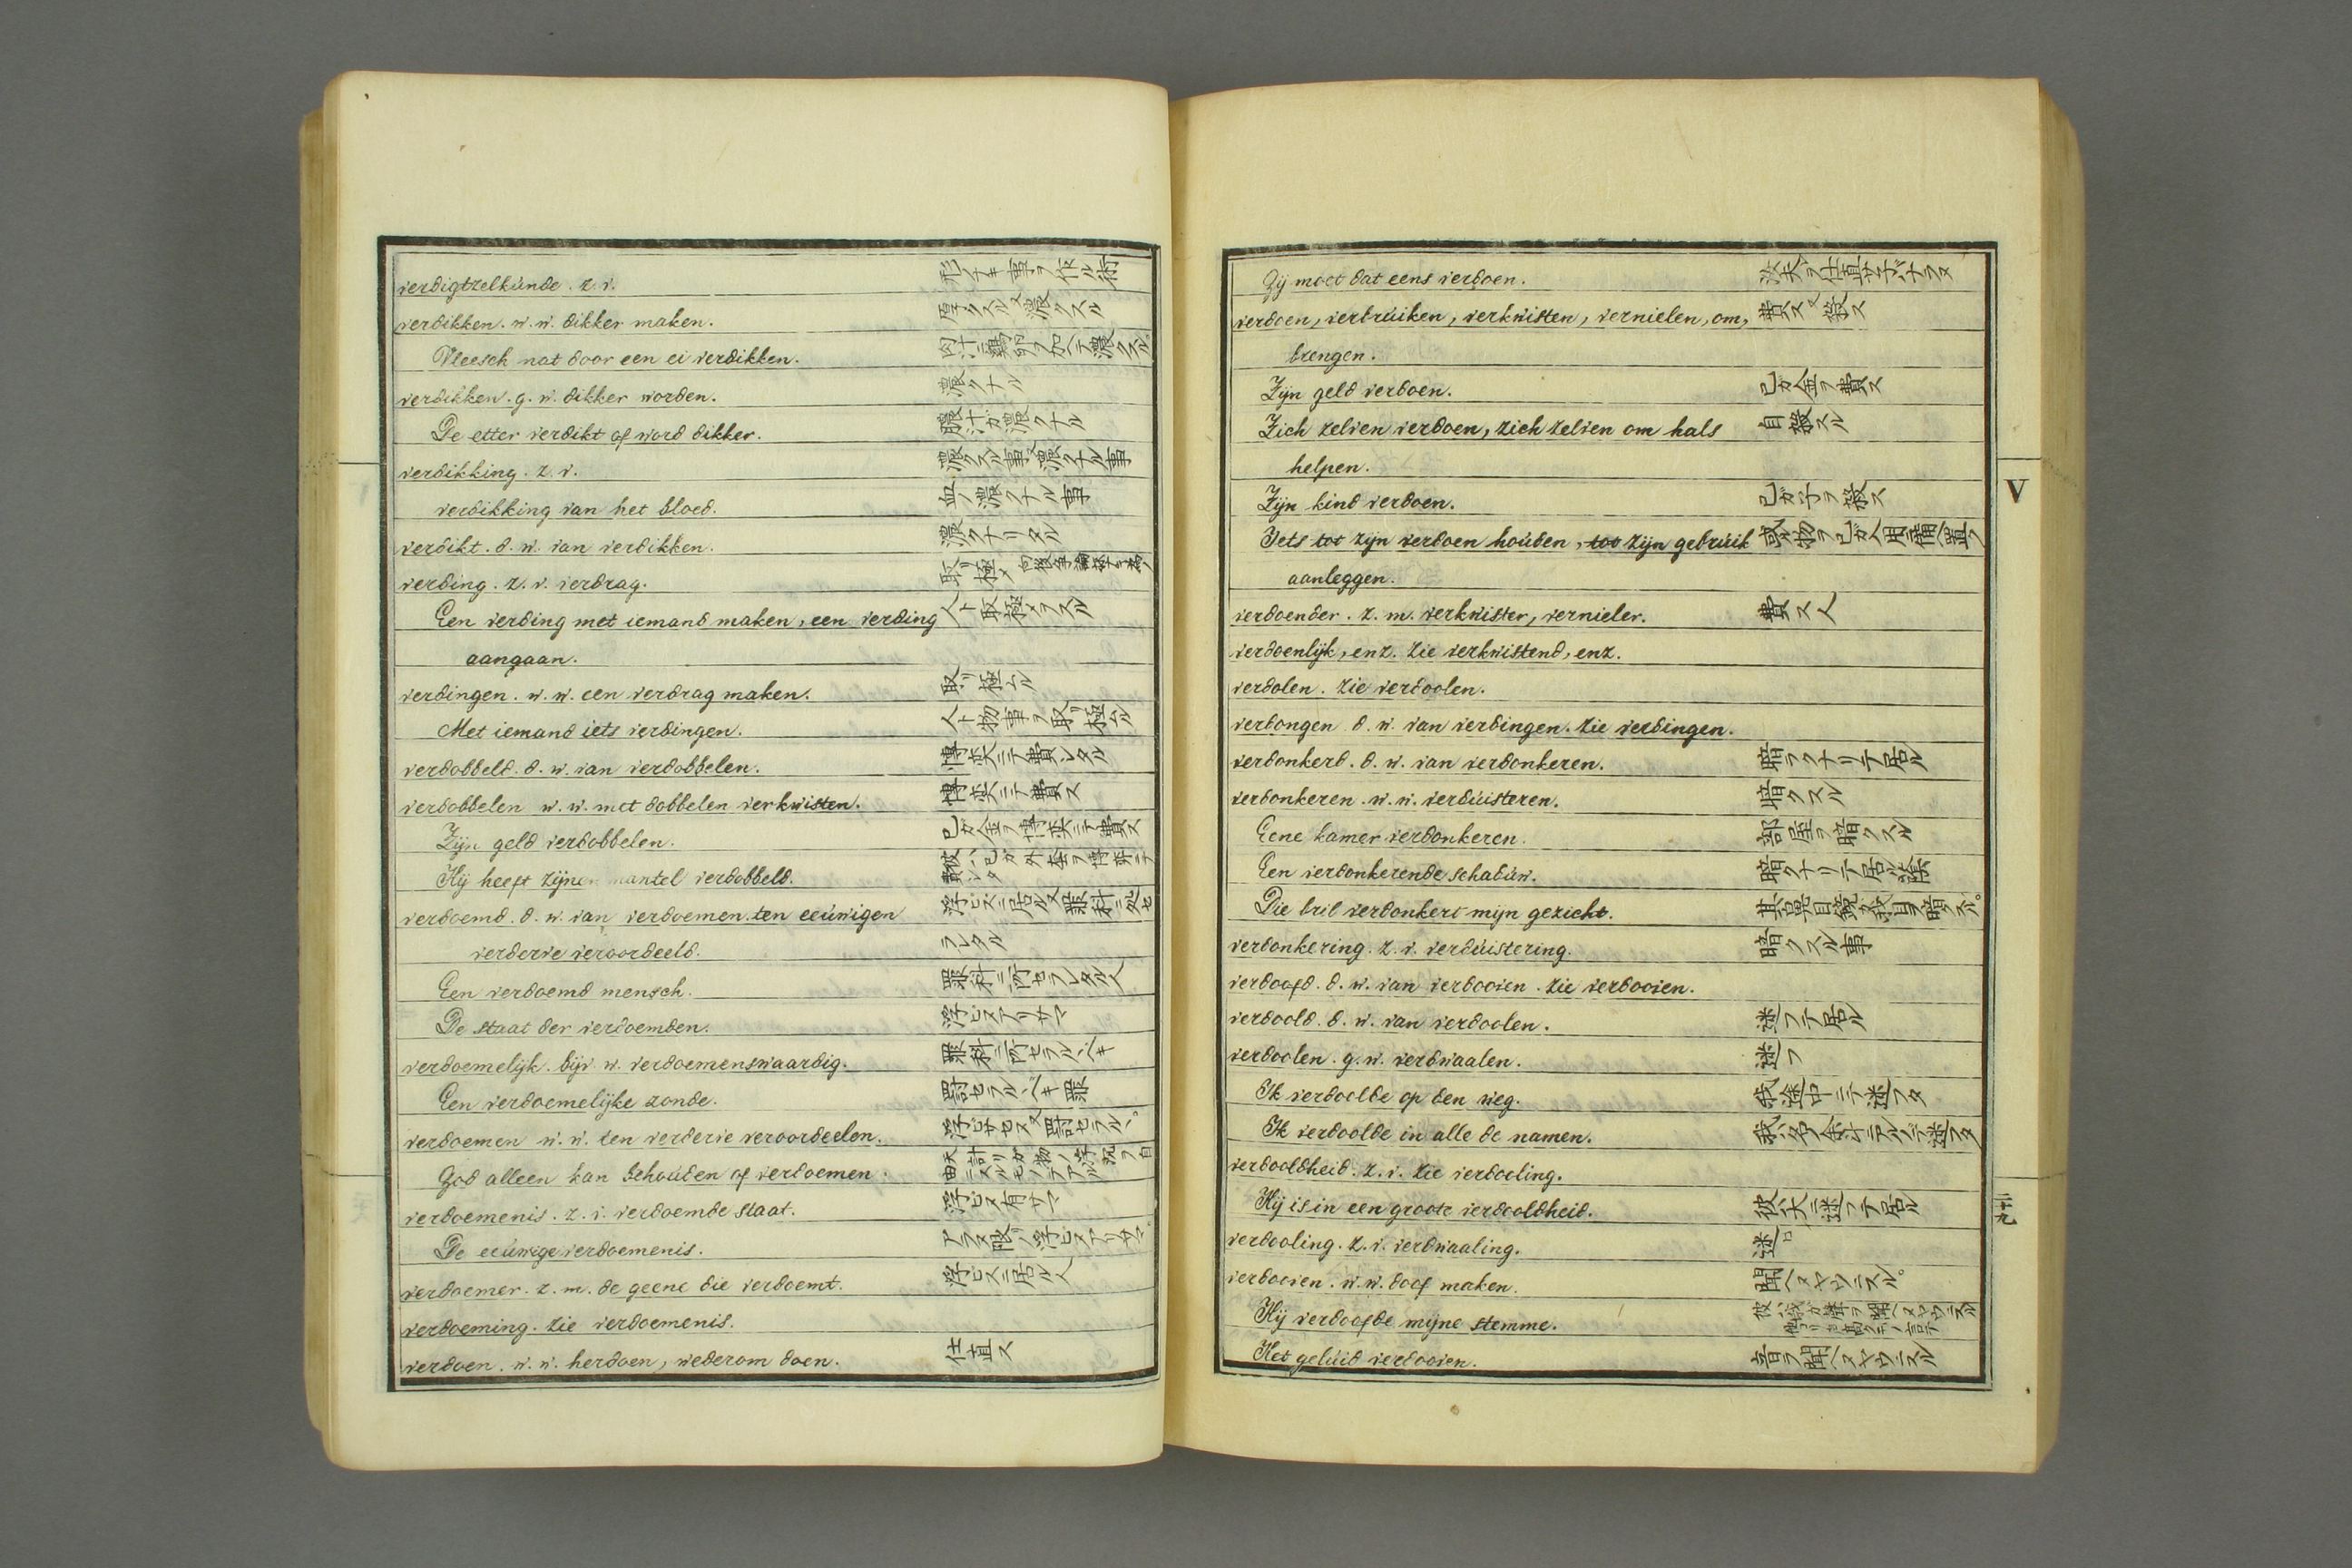 verdigtzelkúnde. z. v. 形チキ事ヲ作ル術
verdikken. w. w. dikker maken. 厚クスル又濃クスル
Vleesch nat door een ei verdikken. 肉汁ニ鶏卵ヲ加ヘテ濃クスル
verdikken. g. w. dikker worden. 濃クナル
De etter verdikt of word dikker. 膿汁ガ濃クナル
verdikking. z. v. 濃クスル事又濃クナル事
verdikking van het bloed. 血ノ濃クナル事
verdikt. d. w. van verdikken. 濃クナリタル
verding. z. v. verdrag. 取リ極メ
Een verding met iemand maken, een verding 人ト取極メヲスル
aangaan.
verdingen. w. w. een verdrag maken. 取リ極ムル
Met iemand iets verdingen. 人ト物事ヲ取リ極ムル
verdobbeld. d. w. van verdobbelen. 博奕ニテ費シタル
verdobbelen w. w. met dobbelen verkwisten. 博奕ニテ費ス
Zijn geld verdobbelen. 己ガ金ヲ博奕ニテ費ス
Hij heeft zijnen mantel verdobbeld. 彼ハ己ガ外套ヲ博奕ニテ費シタ
verdoemd. d. w. van verdoemen. ten eeúwigen 浮ビズニ居ル又罪科ニ処セ
verderve veroordeeld. ラレタル
Een verdoemd mensch. 罪科ニ所セラレタル人
De staat der verdoemden. 浮ビヌアリサマ
verdoemelijk. bijv w. verdoemenswaardig. 罪科ニ所セラルベキ
Een verdoemelijke zonde. 罰セラルベキ罪
verdoemen w. w. ten verderve veroordeelen. 浮ビサセヌ又罰セラル
God alleen kan behoúden of verdoemen.
verdoemenis. z. v. verdoemde staat. 浮ビヌ有サマ
De eeúwige verdoemenis. アラヌ限リ浮ビヌアリサマ
verdoemer. z. m. de geene die verdoemt. 浮ビズニ居ル人
verdoeming. zie verdoemenis.
verdoen. w. w. herdoen, wederom doen. 仕直ス
Gij moet dat eens verdoen.
verdoen, verbrúiken, verkwisten, vernielen, om, 費ス又殺ス
brengen.
Zijn geld verdoen. 己ガ金ヲ費ス
Zich zelven verdoen, zich zelven om hals 自殺スル
helpen.
Zijn kind verdoen. 己ガ子ヲ殺ス
Iets tot zijn verdoen hoúden, tot zijn gebrúik 或物ヲ己ガ入用ニ備ヘ置ク
aanleggen.
verdoender. z. m. verkwister, vernieler. 費ス人
verdoenlijk, enz. zie verkwistend, enz.
verdolen. zie verdoolen.
verdongen d. w. van verdingen. zie verdingen.
verdonkerd. d. w. van verdonkeren. 暗ラクナリテ居ル
verdonkeren. w. w. verdúisteren. 暗クスル
Eene kamer verdonkeren. 部屋ヲ暗クスル
Een verdonkerende schadúw. 暗クナリテ居ル陰
Die bril verdonkert mijn gezicht. 其鼻目鏡ハ我目ヲ暗クスル
verdonkering. z. v. verdúistering. 暗クスル事
verdoofd. d. w. van verdooven. zie verdooven.
verdoold. d. w. van verdoolen. 迷フテ居ル
verdoolen. g. w. verdwaalen. 迷フ
Ik verdoolde op den weg. 我途中ニテ迷フタ
Ik verdoolde in alle de namen.
verdooldheid. z. v. zie verdooling.
Hij is in een groote verdooldheid. 彼大ニ迷フテ居ル
verdooling. z. v. verdwaaling. 迷ヒ
verdooven. w. w. doof maken. 聞ヘヌヤウニスル
Hij verdoofde mijne stemme. 彼ハ我ガ聲ヲ聞ヘヌヤウニスル
Het gelúid verdooven. 音ヲ聞ヘヌヤウニスル
V
二十九